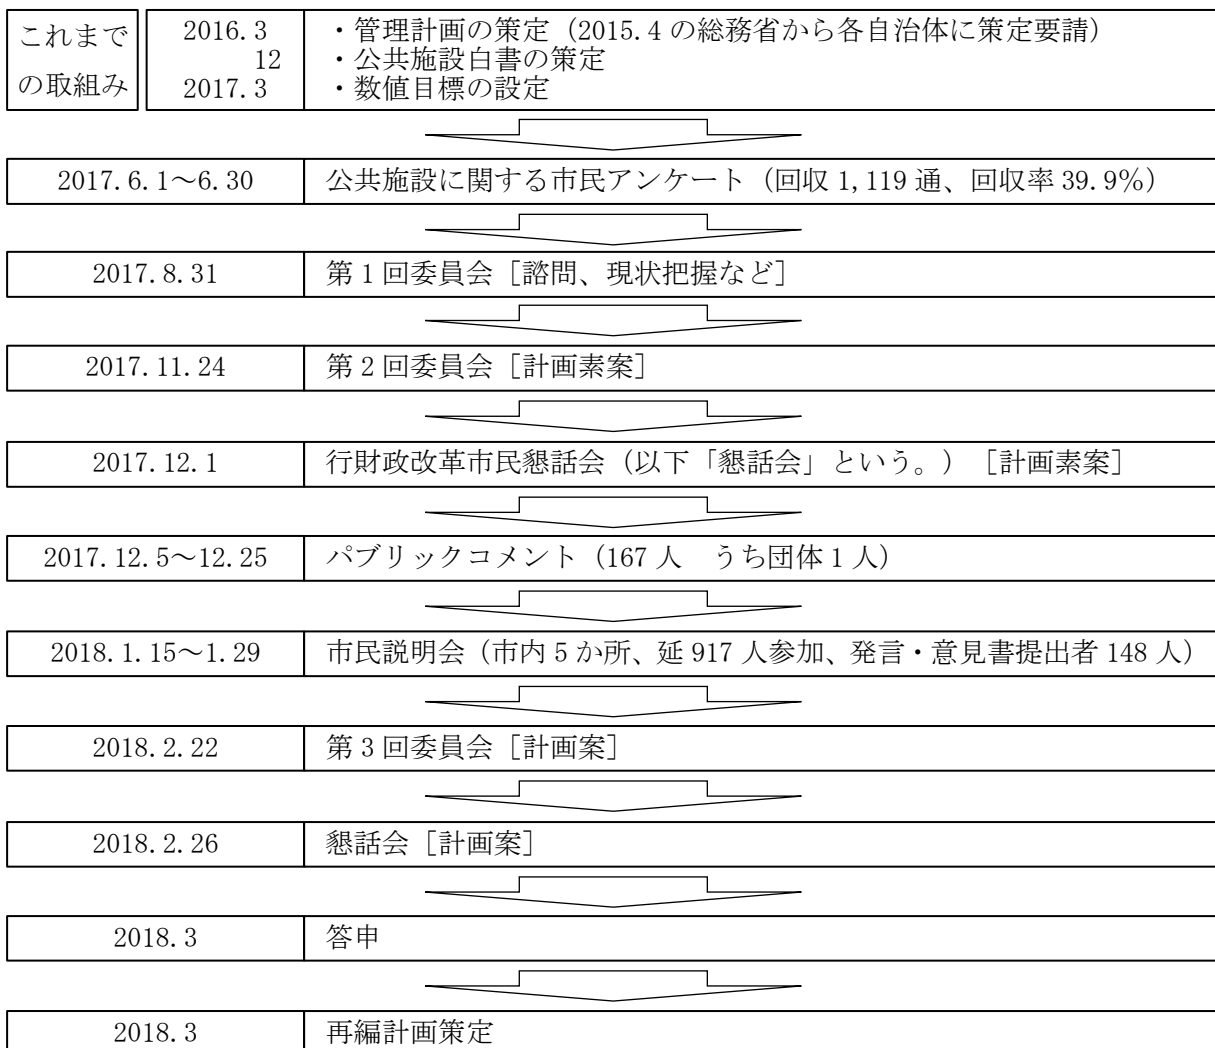 これまで
の取組み
2016.3 ・管理計画の策定（2015.4の総務省から各自治体に策定要請）
12 ・公共施設白書の策定
2017.3 ・数値目標の設定
2017.6.1～6.30 公共施設に関する市民アンケート（回収1,119通、回収率39.9％）
2017.8.31 第1回委員会［諮問、現状把握など］
2017.11.24 第2回委員会［計画素案］
2017.12.1 行財政改革市民懇話会（以下「懇話会」という。）［計画素案］
2017.12.5～12.25 パブリックコメント（167人　うち団体1人）
2018.1.15～1.29 市民説明会（市内5か所、延917人参加、発言・意見書提出者148人）
2018.2.22 第3回委員会［計画案］
2018.2.26 懇話会［計画案］
2018.3 答申
2018.3 再編計画策定